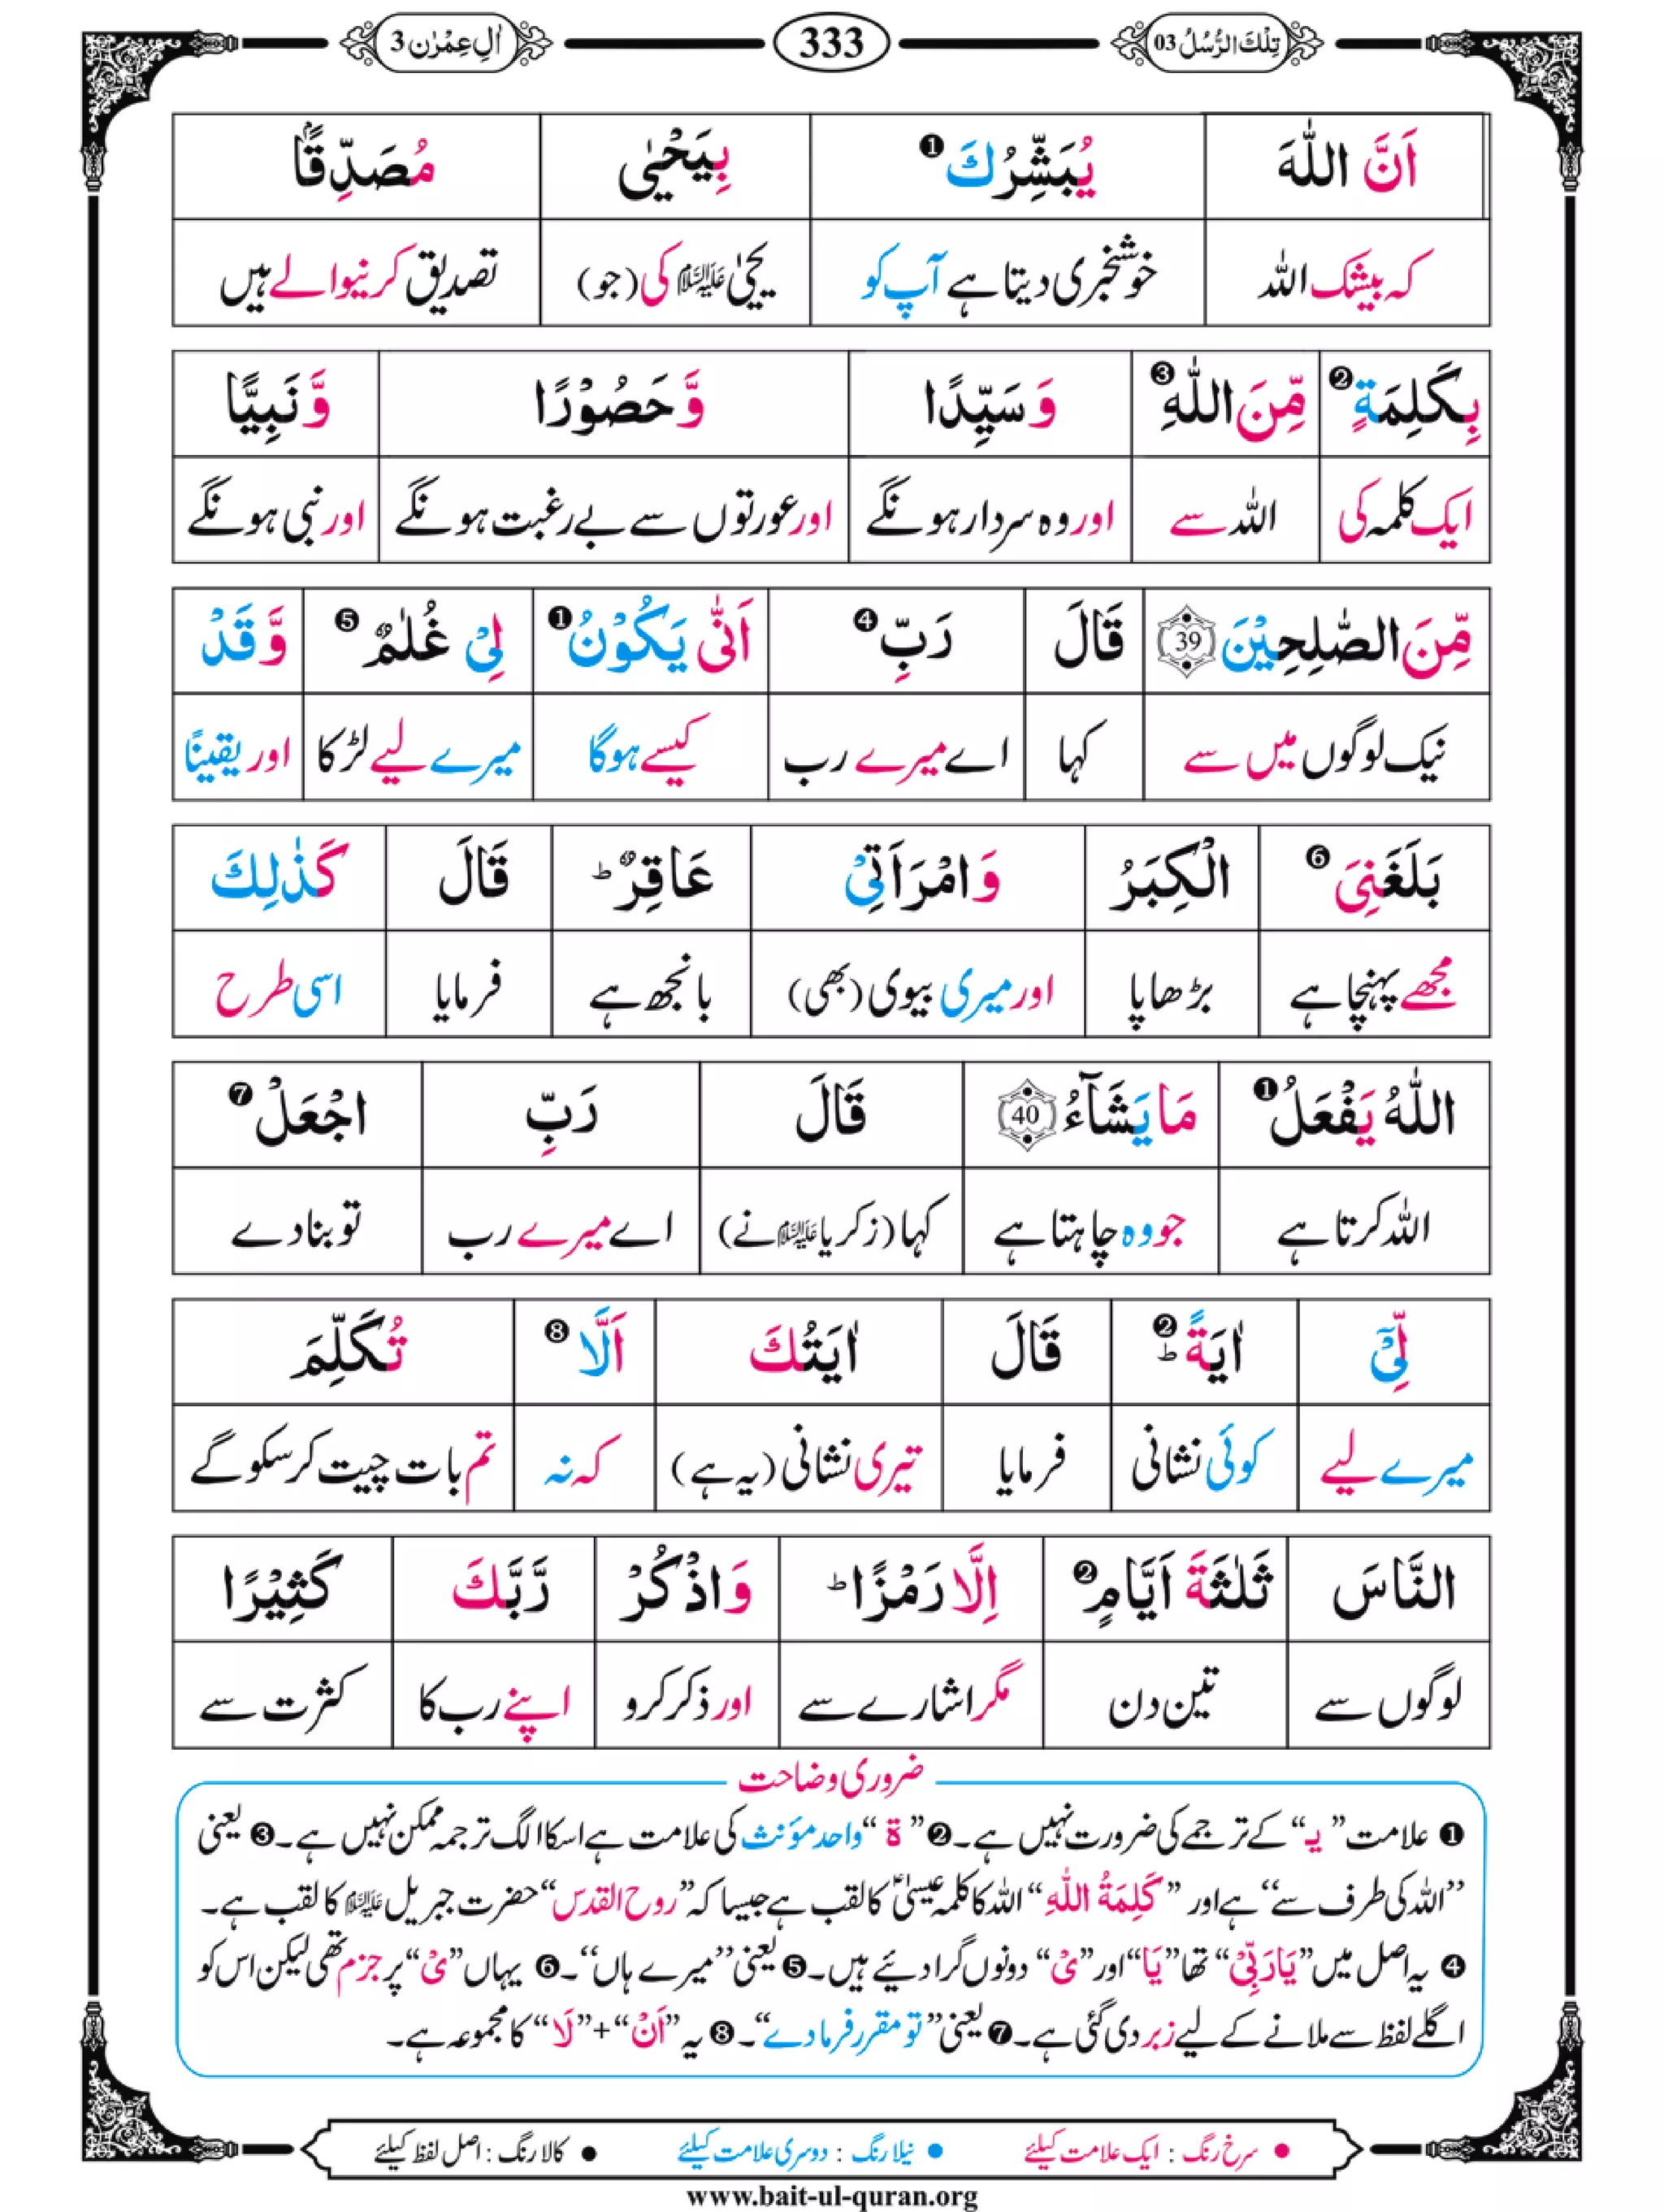 تِلْكَ الرُّسُلُ 03 333 اٰلِ عِمْرٰن 3
اَنَّ اللّٰهَ يُبَشِّرُكَ❶ بِيَحْيٰى مُصَدِّقًاۢ
کہ بیشک اللہ خوشخبری دیتا ہے آپ کو یحییٰ علیہ السلام کی (جو) تصدیق کرنیوالے ہیں
بِكَلِمَةٍ❷ مِّنَ اللّٰهِ❸ وَ سَيِّدًا وَّ حَصُوْرًا وَّ نَبِيًّا
ایک کلمہ کی اللہ سے اور وہ سردار ہونگے اور عورتوں سے بے رغبت ہونگے اور نبی ہونگے
مِّنَ الصّٰلِحِيْنَ 39 قَالَ رَبِّ❹ اَنّٰى يَكُوْنُ❶ لِيْ غُلٰمٌ❺ وَّ قَدْ
نیک لوگوں میں سے کہا اے میرے رب کیسے ہوگا میرے لیے لڑکا اور یقیناً
بَلَغَنِيَ❻ الْكِبَرُ وَ امْرَاَتِيْ عَاقِرٌ ؕ قَالَ كَذٰلِكَ
مجھے پہنچا ہے بڑھاپا اور میری بیوی (بھی) بانجھ ہے فرمایا اسی طرح
اللّٰهُ يَفْعَلُ❶ مَا يَشَآءُ 40 قَالَ رَبِّ اجْعَلْ❼
اللہ کرتا ہے جو وہ چاہتا ہے کہا (زکریا علیہ السلام نے) اے میرے رب تو بنا دے
لِّيْٓ اٰيَةً ؕ❷ قَالَ اٰيَتُكَ اَلَّا❽ تُكَلِّمَ
میرے لیے کوئی نشانی فرمایا تیری نشانی (یہ ہے) کہ نہ تم بات چیت کر سکو گے
النَّاسَ ثَلٰثَةَ اَيَّامٍ❷ اِلَّا رَمْزًا ؕ وَ اذْكُرْ رَّبَّكَ كَثِيْرًا
لوگوں سے تین دن مگر اشارے سے اور ذکر کرو اپنے رب کا کثرت سے
ضروری وضاحت
❶ علامت ”یـ“ کے ترجمے کی ضرورت نہیں ہے۔ ❷ ”ة“ واحد مؤنث کی علامت ہے اسکا الگ ترجمہ ممکن نہیں ہے۔ ❸ یعنی
”اللہ کی طرف سے“ ہے اور ”كَلِمَةُ اللّٰهِ“ اللہ کا کلمہ عیسیٰؑ کا لقب ہے جیسا کہ ”روح القدس“ حضرت جبریل علیہ السلام کا لقب ہے۔
❹ یہ اصل میں ”يَا رَبِّيْ“ تھا ”يَا“ اور ”يْ“ دونوں گرا دیئے ہیں۔ ❺ یعنی ”میرے ہاں“۔ ❻ یہاں ”يْ“ پر جزم تھی لیکن اس کو
اگلے لفظ سے ملانے کے لیے زبر دی گئی ہے۔ ❼ یعنی ”تو مقرر فرما دے“۔ ❽ یہ ”اَنْ“+”لَا“ کا مجموعہ ہے۔
● سرخ رنگ : ایک علامت کیلئے ● نیلا رنگ : دوسری علامت کیلئے ● کالا رنگ : اصل لفظ کیلئے
www.bait-ul-quran.org